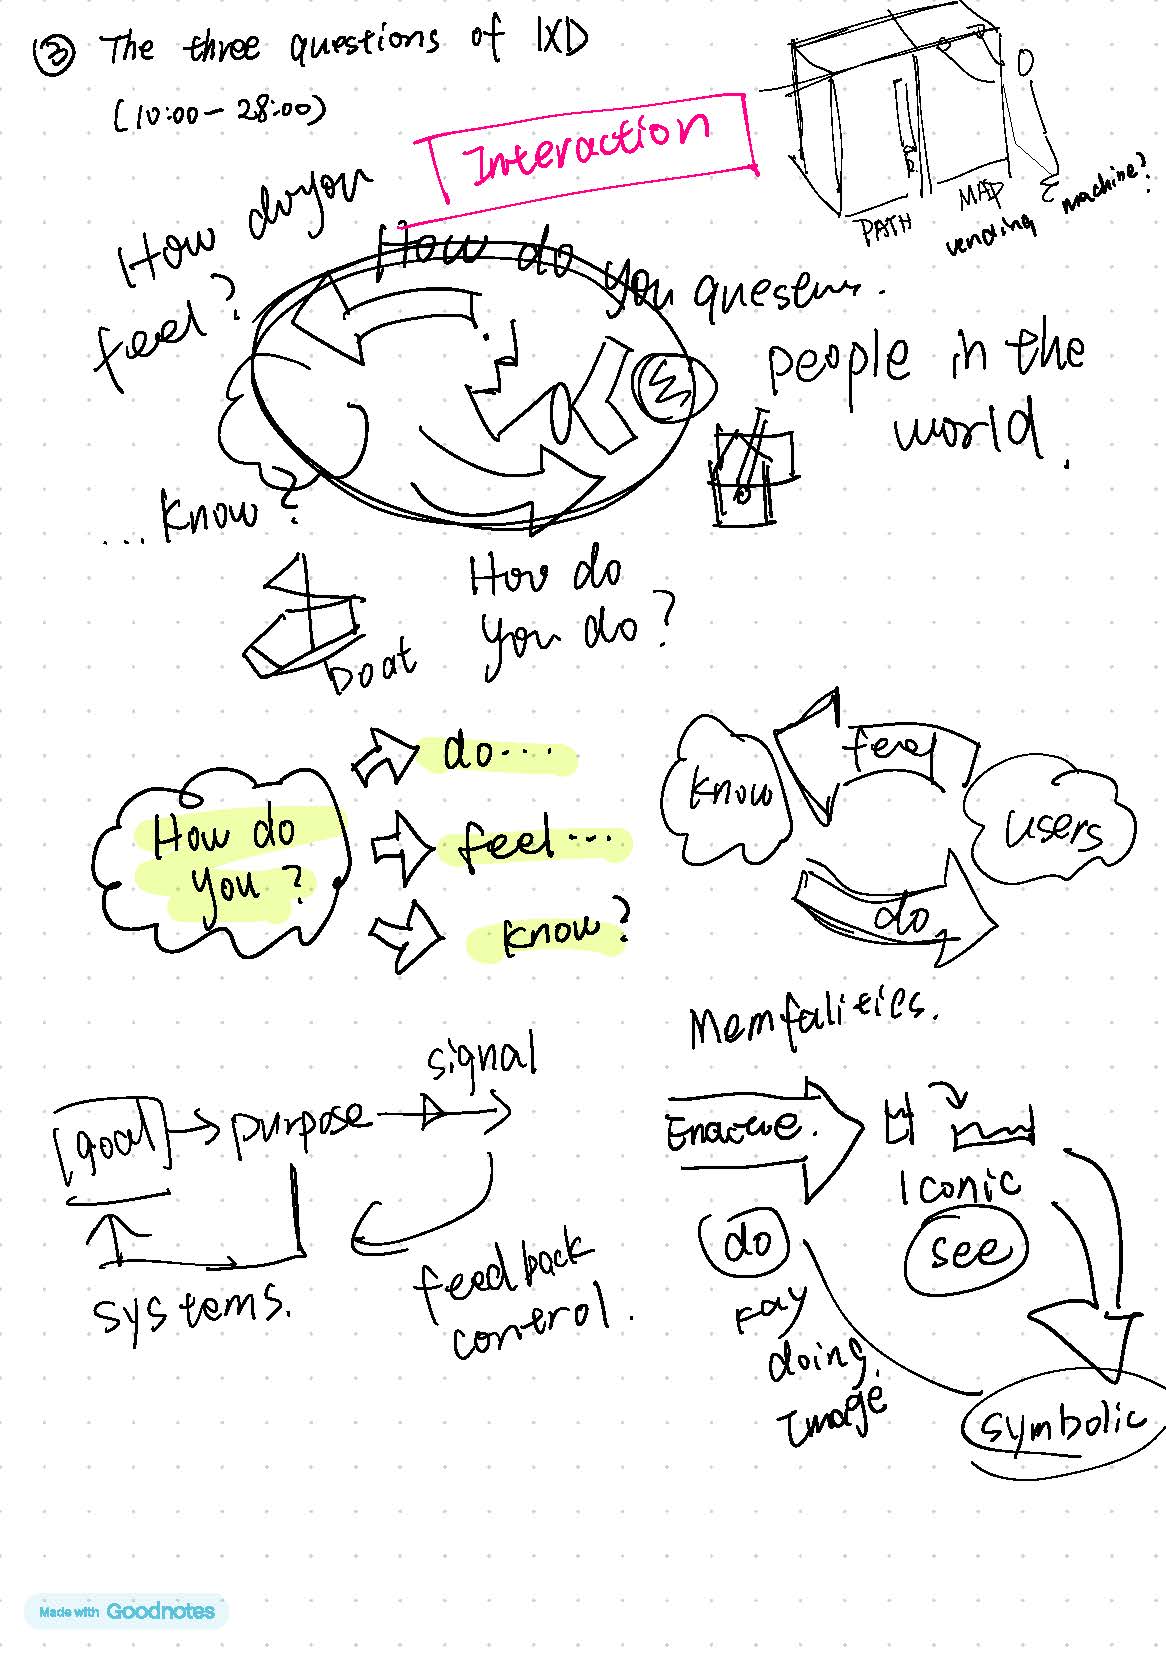 ③ The three questions of IXD
(10:00 - 28:00)
Interaction
PATH
MAP
vending machine?
How do you
feel?
How do
you questions.
people in the
world.
...know?
How do
you do?
boat
How do
you?
do....
feel...
know?
know
feel
users
do
signal
[goal]
purpose
systems.
feedback
control.
Enactive.
Iconic
do
see
Kay
doing
Image
symbolic
Made with Goodnotes